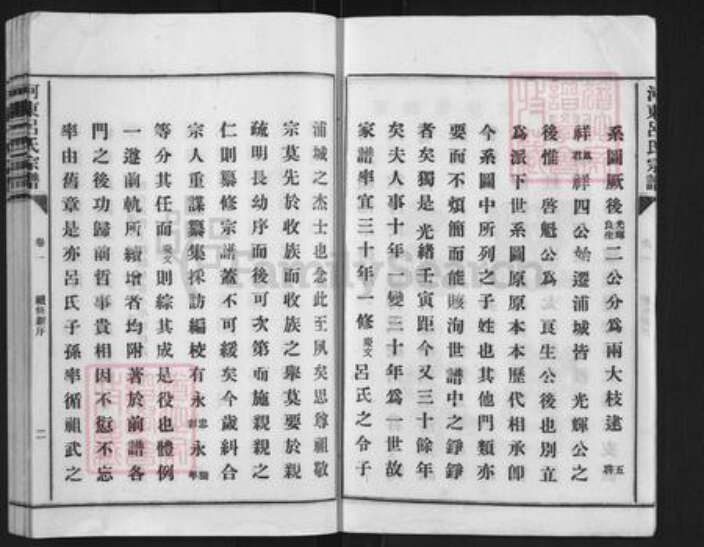 系圖厥後光輝良生二公分爲兩大枝逮五
祥四公始遷浦城皆 光輝公之
後惟 啓魁公爲 良生公後也別立
爲派下世系圖原原本本歷代相承卽
今系圖中所列之子姓也其他門類亦
要而不煩簡而能賅洵世譜中之錚錚
者矣獨是 光緒壬寅距今又三十餘年
矣夫人事十年一變三十年爲一世故
家譜率宜三十年一修慶文呂氏之令子
浦城之杰士也念此至夙矣思尊祖敬
宗莫先於收族而收族之舉莫要於親
疏明長幼序而後可次第而施親親之
仁則纂修宗譜蓋不可緩矣今歲糾合
宗人重謀纂集採訪編校有永忠永
等分其任而慶文則綜其成是役也體例
一遵前軌所續增者均附著於前譜各
門之後功歸前哲事貴相因不愆不忘
率由舊章是亦呂氏子孫率循祖武之
河東呂氏宗譜
卷一
二
河東呂氏宗譜
FamilySearch